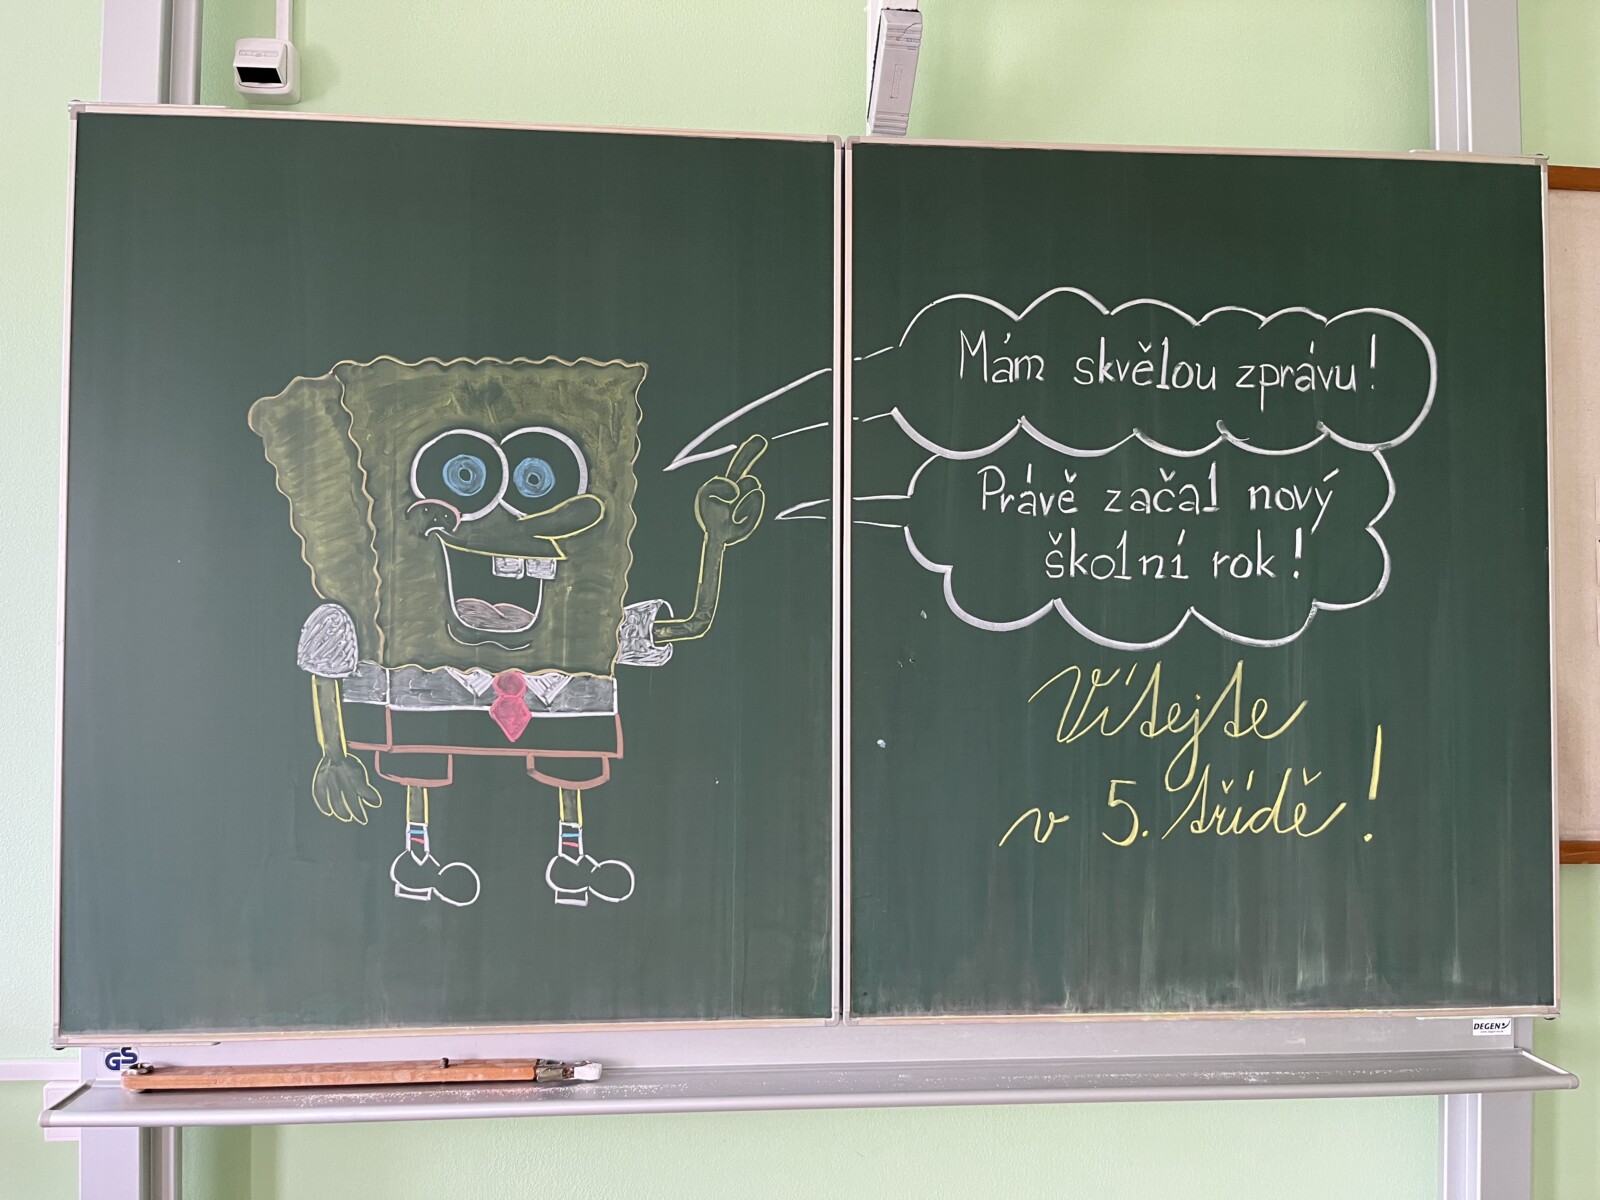 Mám skvělou zprávu!
Právě začal nový
školní rok!
Vítejte
v 5. třídě!
DEGEN
GS